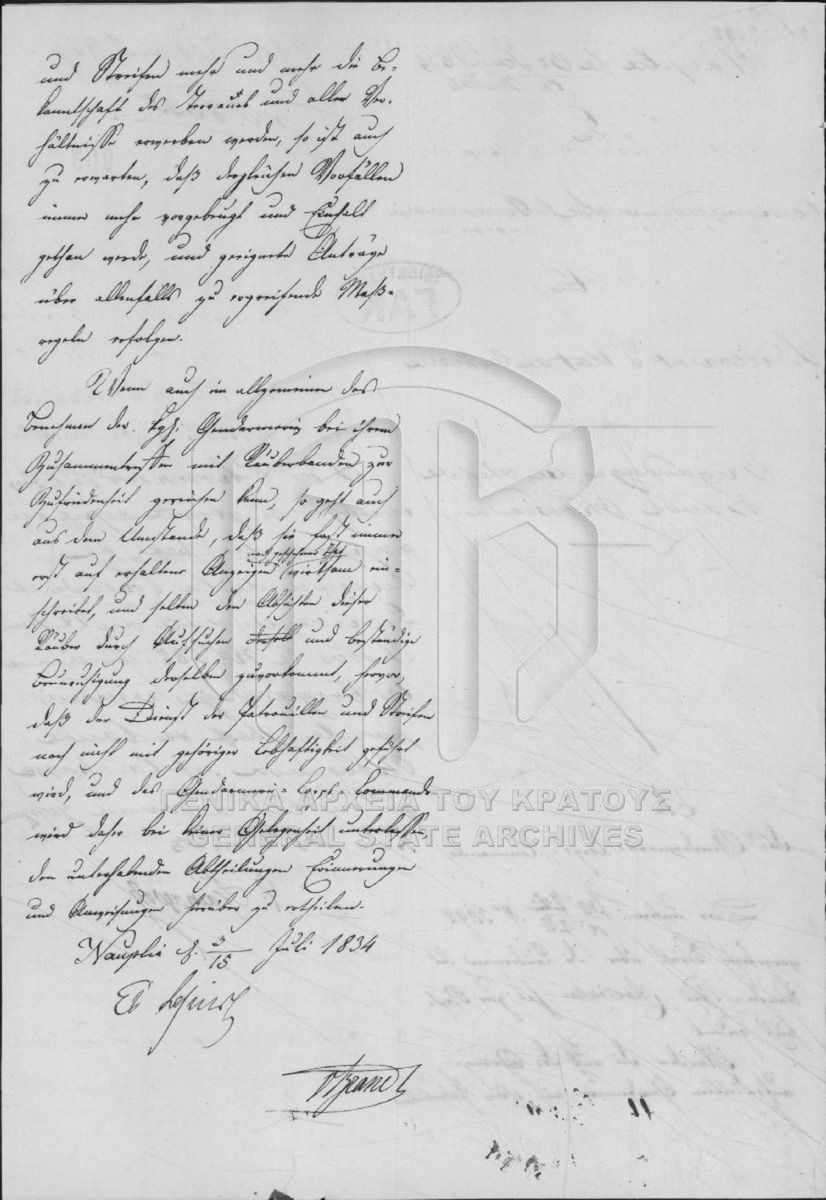 und Streifen mehr und mehr die Be-
kanntschaft des Terrains und aller Ver-
hältnisse erwerben werden, so ist auch
zu erwarten, daß dergleichen Vorfällen
immer mehr vorgebeugt und Einhalt
gethan werde, und geeignete Anträge
über allenfalls zu ergreifende Maß-
regeln erfolgen.
Wenn auch im allgemeinen das
Benehmen der kgl. Gendarmerie bei ihrem
Zusammentreffen mit Räuberbanden zur
Zufriedenheit gereichen kann, so geht auch
aus dem Umstande, daß sie fast immer
nach geschehener That
erst auf erhaltene Anzeigen wirksam ein-
schreitet, und selten den Absichten dieser
Räuber durch Aufsuchen und beständige
Beunruhigung derselben zuvorkommt, hervor,
daß der Dienst der Patrouillen und Streifen
noch nicht mit gehöriger Lebhaftigkeit geführt
wird, und das Gendarmerie-Corps-Commando
wird daher bei keiner Gelegenheit unterlassen,
den unterhabenden Abtheilungen Erinnerungen
und Anweisungen hierüber zu ertheilen.
Nauplia d. 3/15 Juli 1834
ΓΕΝΙΚΑ ΑΡΧΕΙΑ ΤΟΥ ΚΡΑΤΟΥΣ
GENERAL STATE ARCHIVES